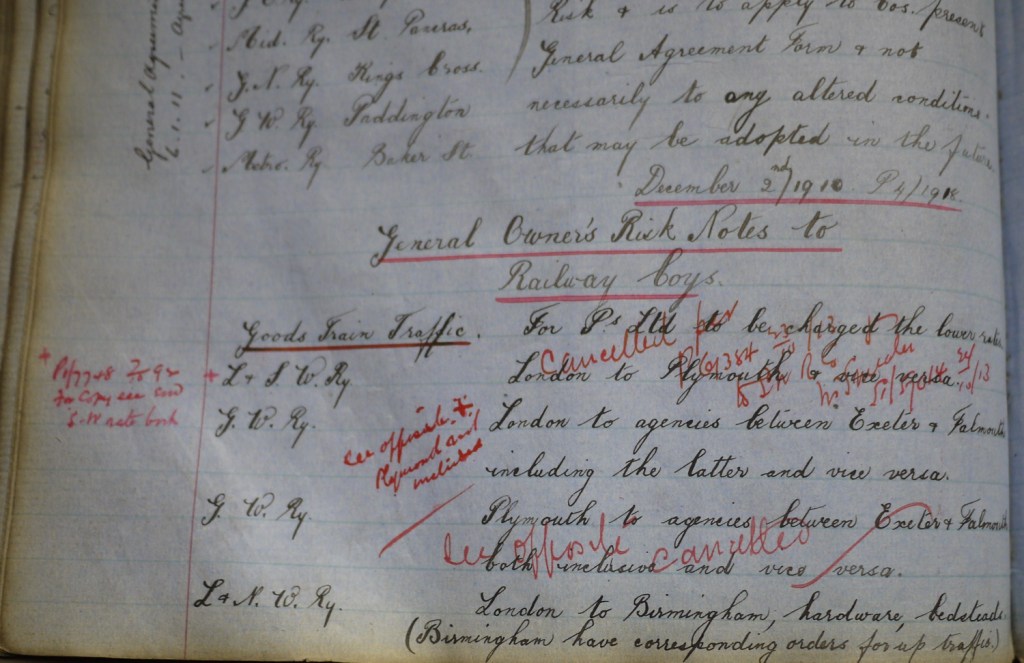 General Agreement
Risk & is to apply to Cos. present
Mid. Ry. St Pancras,
General Agreement Form & not
G. N. Ry. Kings Cross.
necessarily to any altered conditions
G W. Ry. Paddington
that may be adopted in the future
Metro. Ry. Baker St.
December 2nd/1910. P4/1918.
General Owner's Risk Notes to
Railway Coys.
Goods Train Traffic. For Ps Ltd to be charged the lower rates
Cancelled
L & S. W. Ry. London to Plymouth & vice versa.
For Copy see card
S-W rate book
G. W. Ry. London to agencies between Exeter & Falmouth
including the latter and vice versa.
see opposite.
Plymouth and
G. W. Ry. Plymouth to agencies between Exeter & Falmouth
both inclusive and vice versa.
see opposite cancelled
L & N. W. Ry. London to Birmingham, hardware, bedsteads
(Birmingham have corresponding orders for up traffic.)